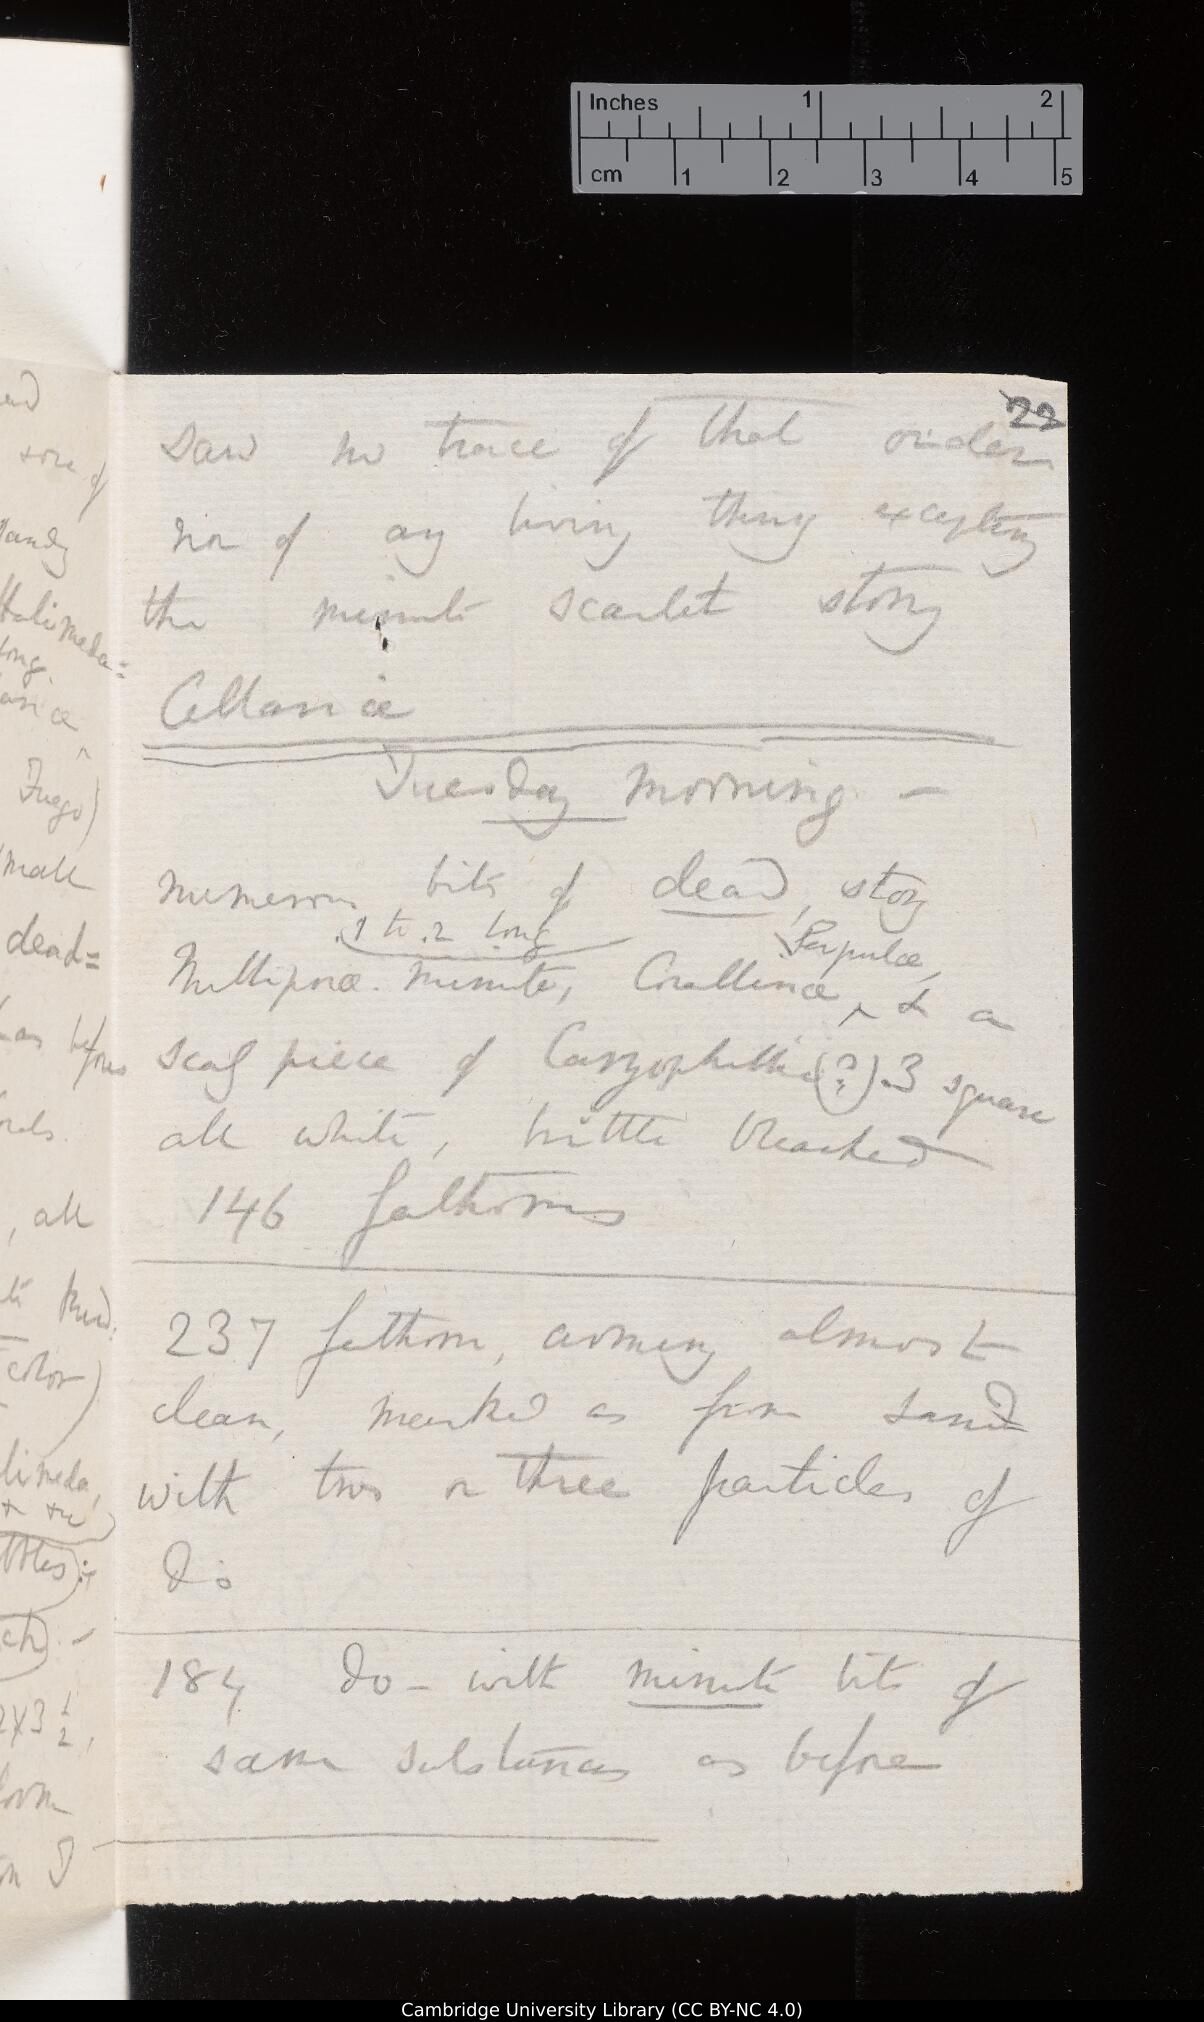 Inches 1 2
cm 1 2 3 4 5
22
saw no trace of that order
nor of any living thing excepting
the minute scarlet stony
Cellariæ
Tuesday morning —
numerous bits of dead, stony
.1 to .2 long
Serpulæ,
Nulliporæ. minute, Corallinæ ^ & a
scaly piece of Caryophillia (?) .3 square
all white, brittle bleached
146 fathoms
237 fathom, arming almost
clean, marked as from sand
with two or three particles of
Do
184 Do — with minute bits of
same substances as before
sandy
Halimeda=
long.
Fuego)
small
dead=
as before
, all
kind:
color)
limeda,
2x3 1/2,
Cambridge University Library (CC BY-NC 4.0)